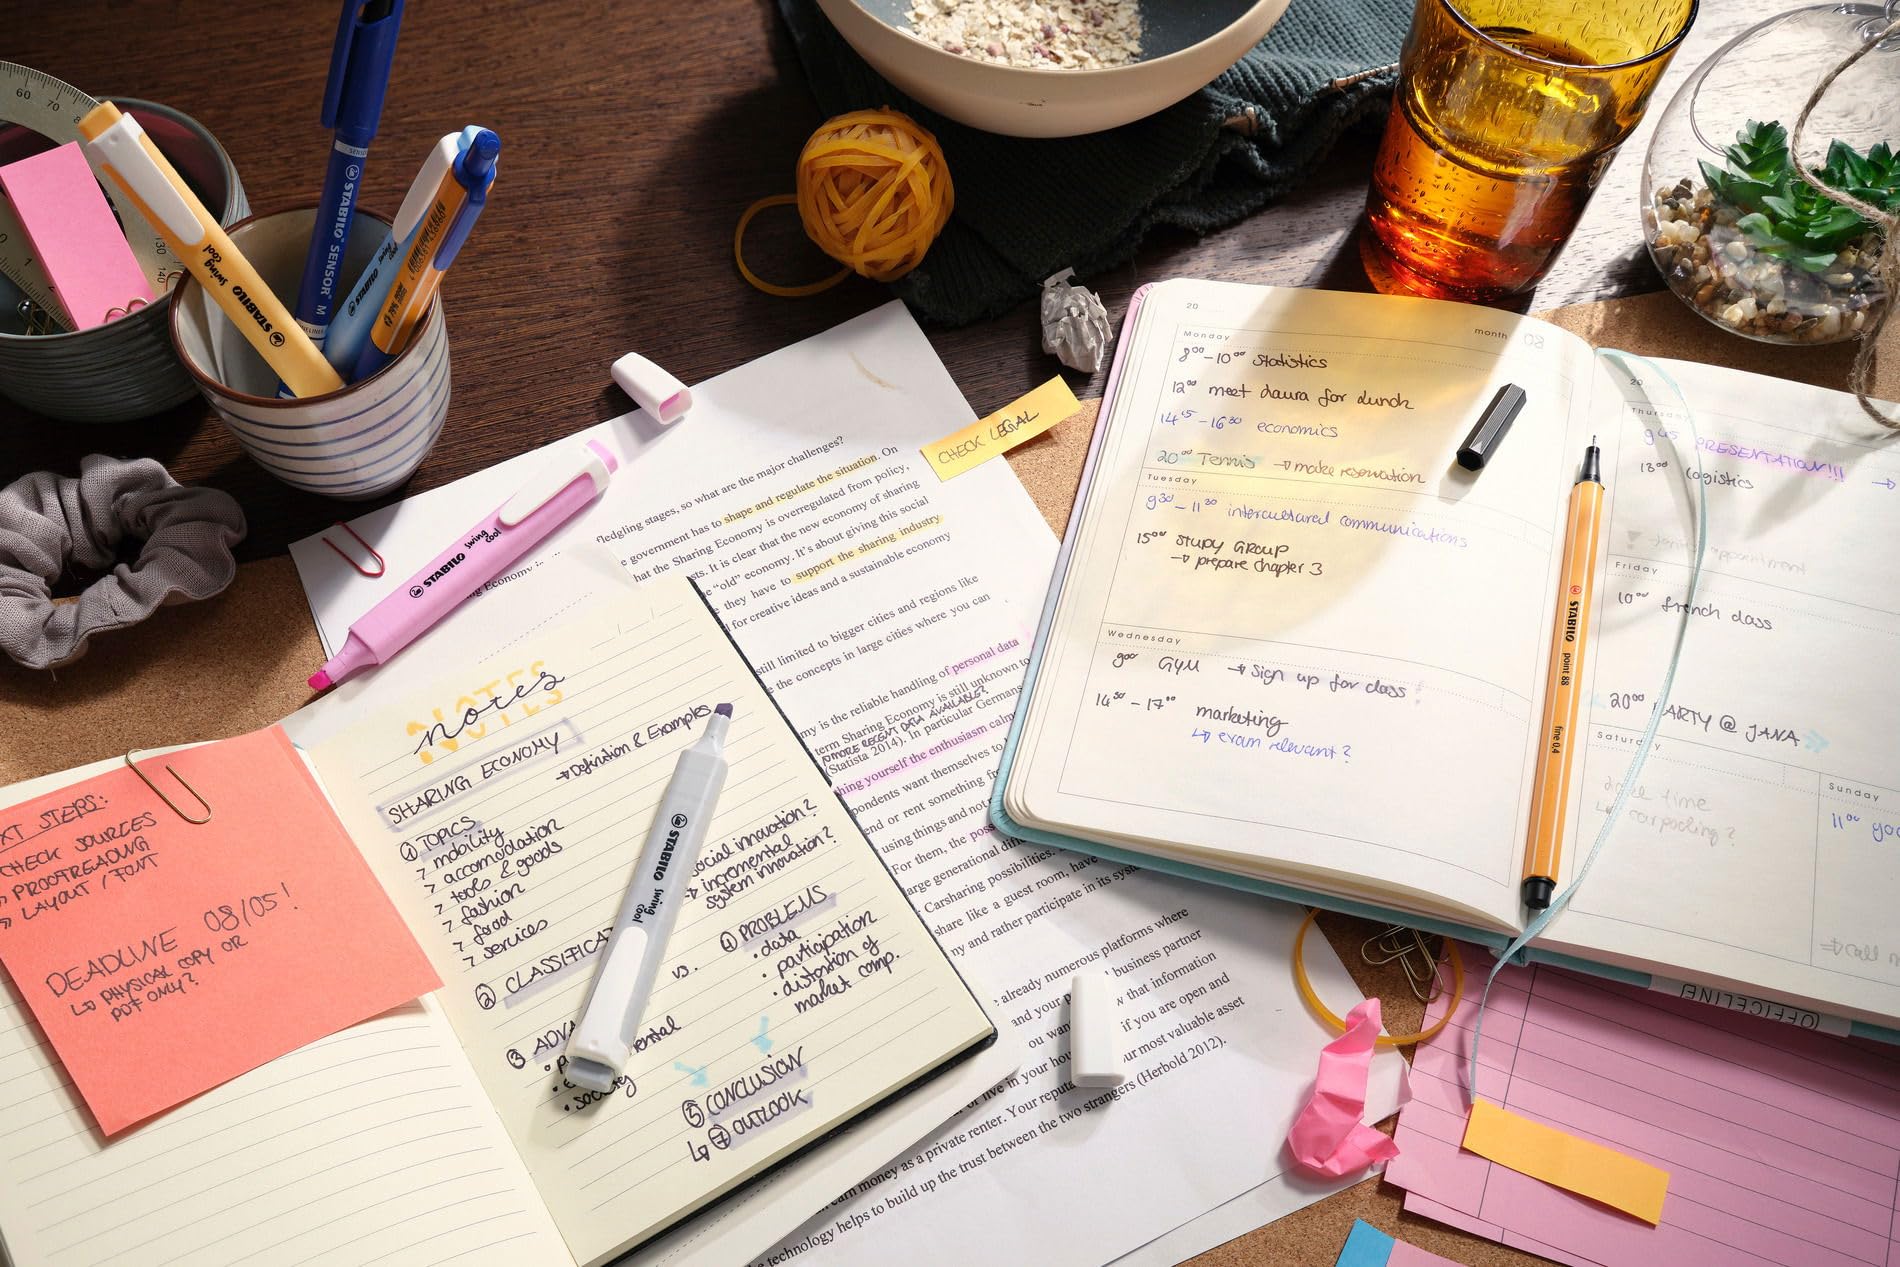 60 70
130 140
STABILO swing cool
STABILO SENSOR M
STABILO
STABILO swing cool
notes
SHARING ECONOMY
→ Definition & Examples
① TOPICS
> mobility
> accomodation
> tools & goods
> fashion
> food
> services
② CLASSIFICAT
③ ADVA
ental
society
social innovation?
→ incremental
system innovation?
vs.
④ PROBLEMS
• data
• participation
• distortion of
market comp.
⑤ CONCLUSION
↳ ⑦ OUTLOOK
STABILO swing cool
XT STEPS:
CHECK SOURCES
» PROOFREADING
» LAYOUT / FONT
DEADLINE 08/05!
↳ PHYSICAL COPY OR
PDF ONLY?
CHECK LEGAL
fledgling stages, so what are the major challenges?
e government has to shape and regulate the situation. On
hat the Sharing Economy is overregulated from policy,
sts. It is clear that the new economy of sharing
e "old" economy. It's about giving this social
they have to support the sharing industry
for creative ideas and a sustainable economy
still limited to bigger cities and regions like
e the concepts in large cities where you can
my is the reliable handling of personal data
term Sharing Economy is still unknown to
MORE RECENT DATA AVAILABLE?
(Statista 2014). In particular Germans
hing yourself the enthusiasm calm
pondents want themselves to
end or rent something
using things and not
For them, the poss
large generational diff
Carsharing possibilities.
share like a guest room, have
ny and rather participate in its sys
already numerous platforms where
and your business partner
ou wan w that information
if you are open and
or live in your hou ur most valuable asset
earn money as a private renter. Your reputa
technology helps to build up the trust between the two strangers (Herbold 2012).
20
month 08
Monday
8⁰⁰ – 10⁰⁰ Statistics
12⁰⁰ meet Laura for Lunch
14¹⁵ – 16³⁰ economics
20⁰⁰ Tennis → make reservation
Tuesday
9³⁰ – 11³⁰ intercultured communications
15⁰⁰ STUDY GROUP
→ prepare chapter 3
Wednesday
9⁰⁰ GYM → sign up for class
14³⁰ – 17⁰⁰ marketing
↳ exam relevant?
STABILO point 88 fine 0,4
20
Thursday
9⁴⁵ PRESENTATION!!!
13⁰⁰ Logistics
Friday
10⁰⁰ french class
20⁰⁰ PARTY @ JANA
Saturday
time
↳ carpooling?
Sunday
11⁰⁰
call
OFFICELINE